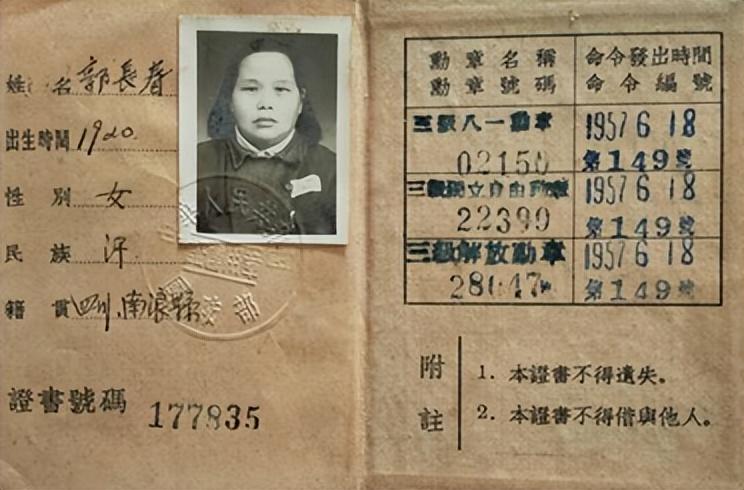 姓名 郭長春
出生時間 1920.
性別 女
民族 汗
籍貫 四川.南浪縣
證書號碼 177835
勳章名稱 命令發出時間
勳章號碼 命令編號
三級八一勳章 1957 6 18
02150 第149號
三級獨立自由勳章 1957 6 18
22390 第149號
三級解放勳章 1957 6 18
第149號
附註
1. 本證書不得遺失。
2. 本證書不得借與他人。